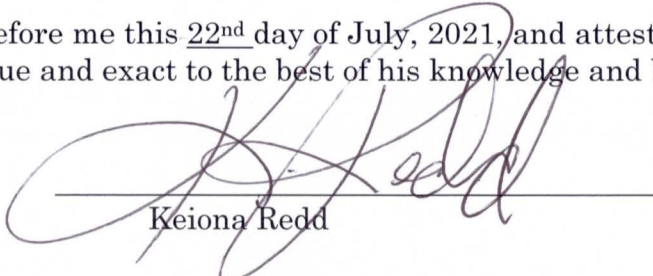 efore me this 22nd day of July, 2021, and attest
ue and exact to the best of his knowledge and
K Redd
Keiona Redd